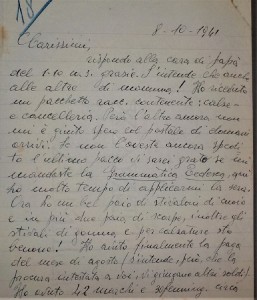 18
8-10-1941
Carissimi,
rispondo alla cara di papà
del 1.10 u.s. grazie. S'intende che anche
alle altre di mamma! Ho ricevuto
un pacchetto racc. contenente: calze
e cancelleria. Però l'altro ancora non
mi è giunto spero col postale di domani
arrivi. Se non l'aveste ancora spedi
to l'ultimo pacco vi sarei grato se mi
mandaste la Grammatica Tedesca, qui
ho molto tempo di applicarmi la sera.
Ora ho un bel paio di stivaloni di cuoio
e in più due paia di scarpe, inoltre gli
stivali di gomma e per calzature sto
benone! Ho avuto finalmente la paga
del mese di agosto! s'intende, più che la
procura intestata a voi, vi giungano altri soldi!
Ho avuto 42 marchi e